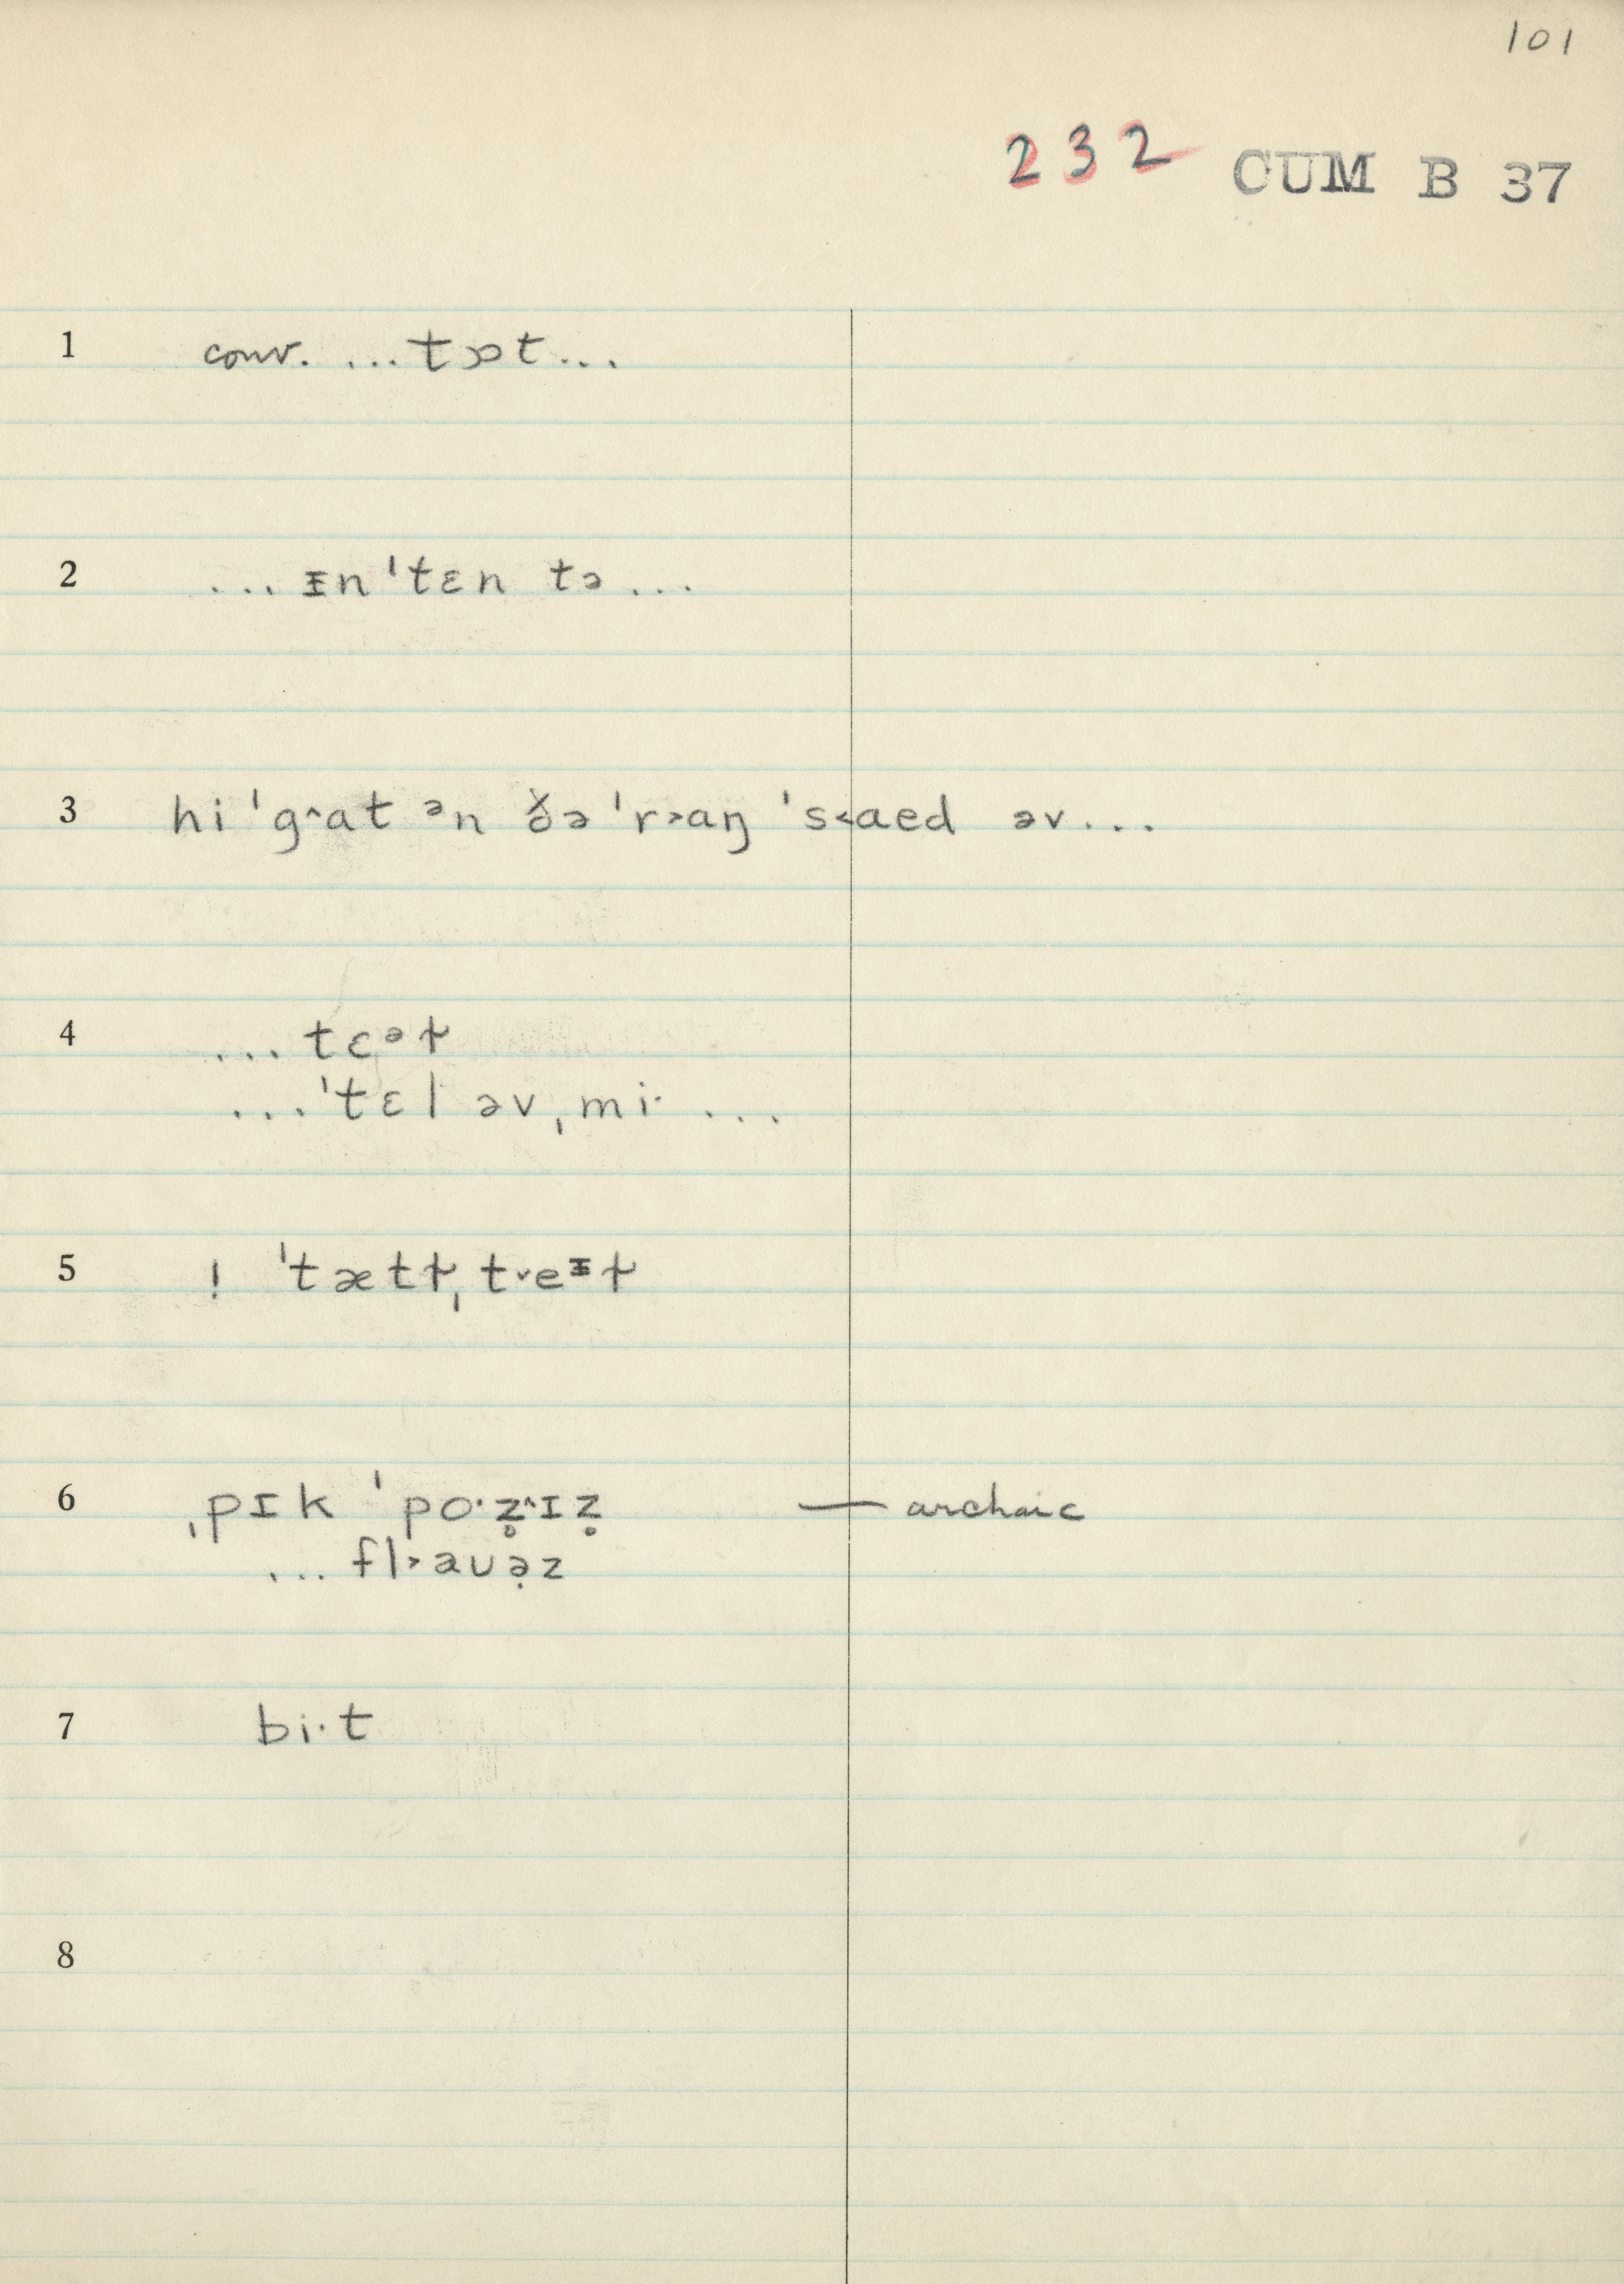 101
232 CUM B 37
1 conv. ...tɔt...
2 ... ᵻn'tɛn tə...
3 hi 'g^at ᵊn ðə 'r˃aŋ 's˂aed əv...
4 ... tɛᵊɫ
...'tɛl əv ˌmi· ...
5 ! 'tætɫˌt˅eᵻɫ
6 ˌpɪk 'po·z̥^ɪz̥ — archaic
... fl˃aʊə̣z
7 bi·t
8